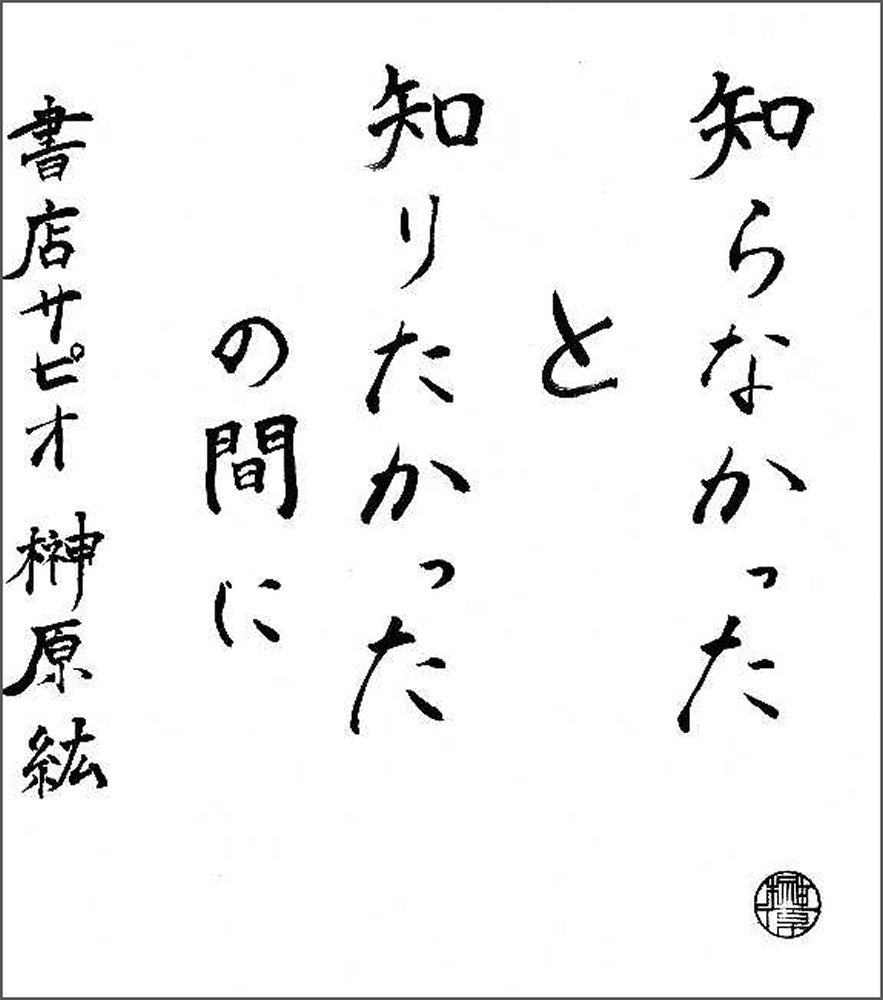 知らなかった
と
知りたかった
の間に
書店サピオ 榊原紘